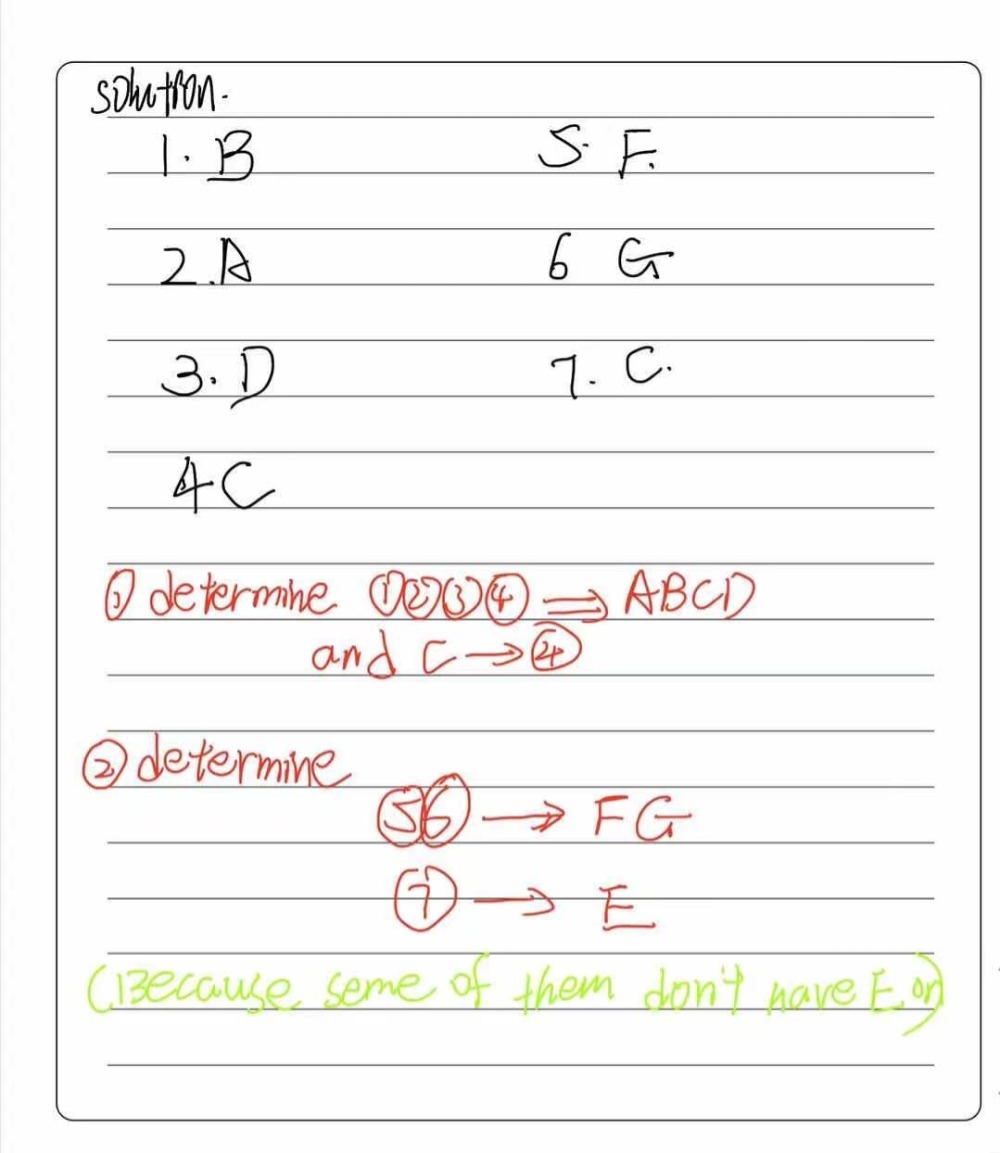 solution.
1. B
5. F.
2. A
6 G
3. D
7. C.
4 C
① determine ①②③④ ⇒ ABCD
and C → ④
② determine
⑤⑥ → FG
⑦ → E
(Because some of them don't have E on)